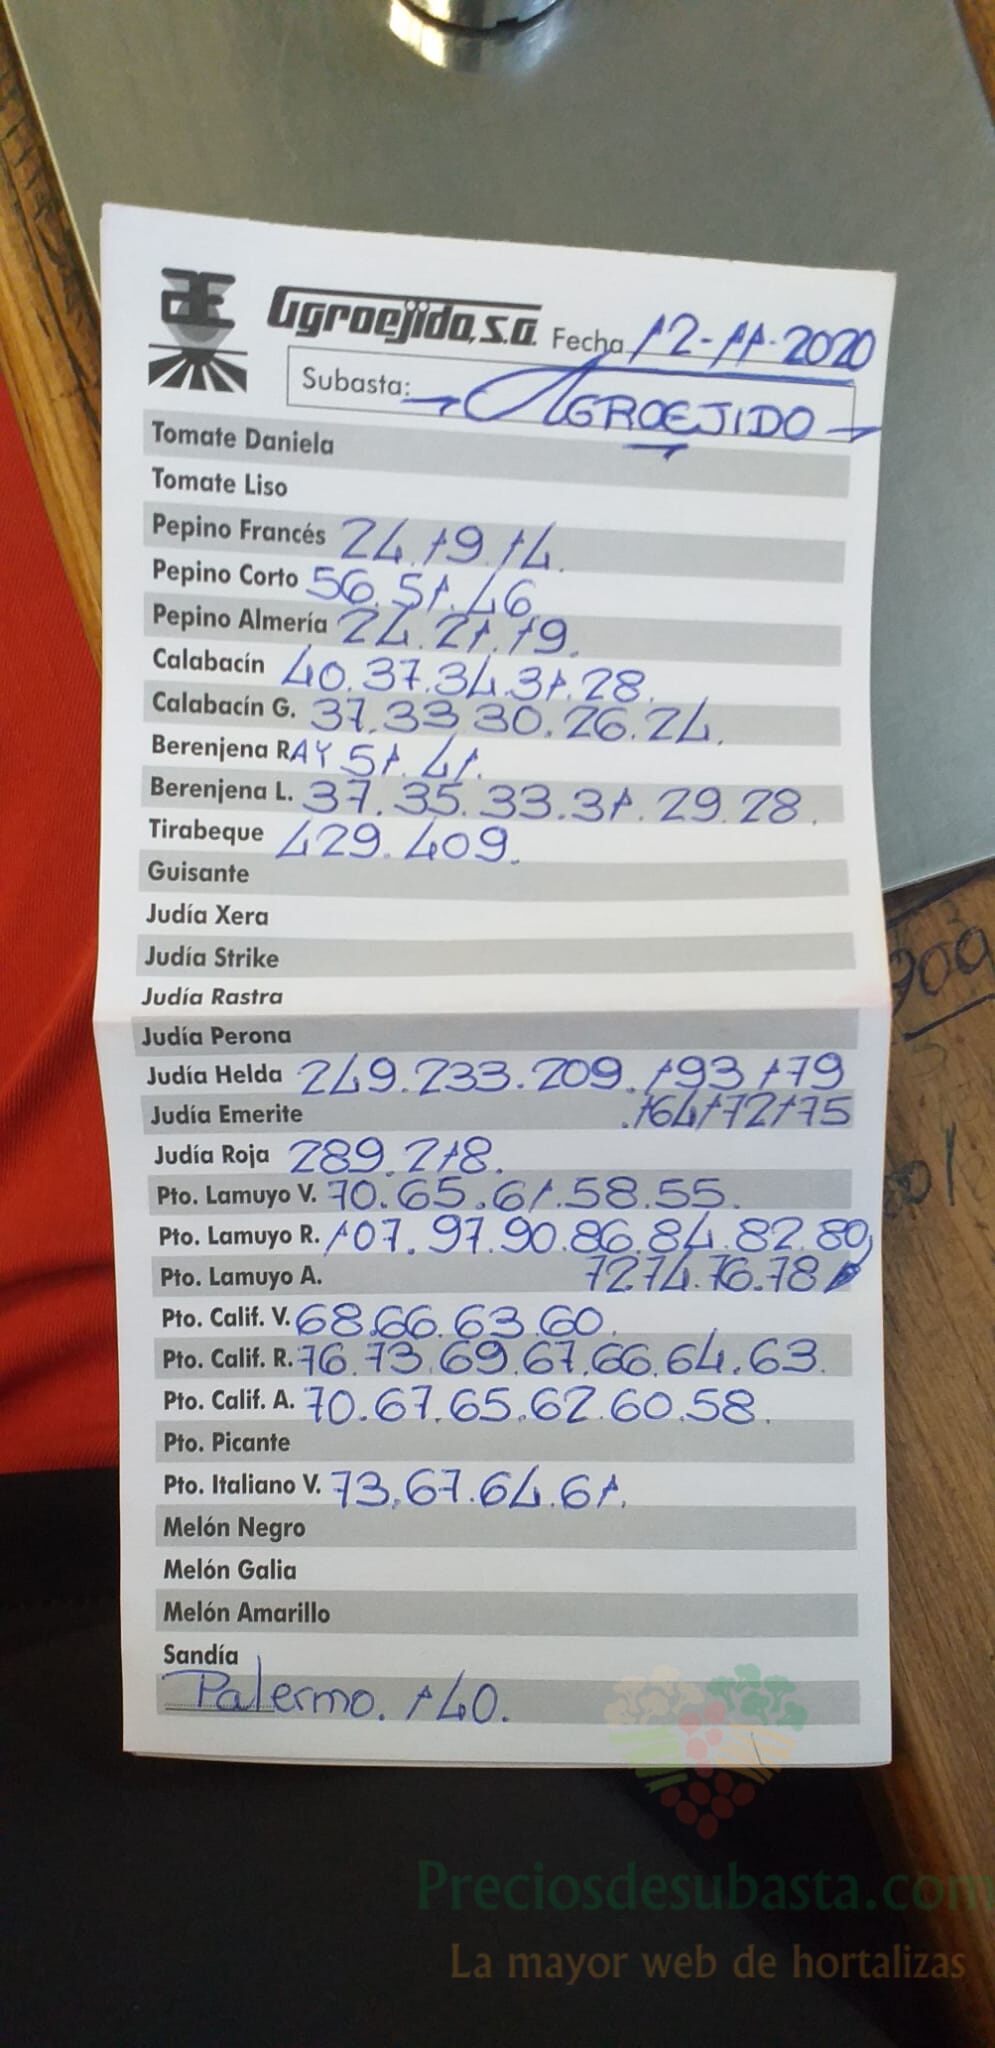 Agroejido, s.a. Fecha 12-11-2020
Subasta: AGROEJIDO
Tomate Daniela
Tomate Liso
Pepino Francés 24.19.14.
Pepino Corto 56.51.46
Pepino Almería 24.21.19.
Calabacín 40.37.34.31.28.
Calabacín G. 37.33 30.26.24.
Berenjena RAY 51.41.
Berenjena L. 37.35.33.31.29.28.
Tirabeque 429.409.
Guisante
Judía Xera
Judía Strike
Judía Rastra
Judía Perona
Judía Helda 249.233.209.193 179
Judía Emerite .164 172 175
Judía Roja 289.218.
Pto. Lamuyo V. 70.65.61.58.55.
Pto. Lamuyo R. 107.97.90.86.84.82.80
Pto. Lamuyo A. 72 74.76.78
Pto. Calif. V. 68.66.63.60.
Pto. Calif. R. 76.73.69.67.66.64.63.
Pto. Calif. A. 70.67.65.62.60.58.
Pto. Picante
Pto. Italiano V. 73.67.64.61.
Melón Negro
Melón Galia
Melón Amarillo
Sandía
Palermo. 140.
Preciosdesubasta.com
La mayor web de hortalizas